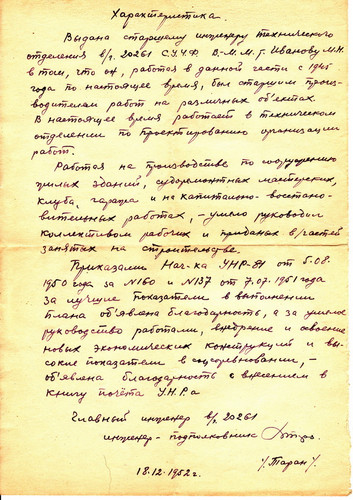 Характеристика.
Выдана старшему инженеру технического
отделения в/ч 20261 С.У.Ч.Ф В-М.М.Г. Иванову М.Н.
в том, что он, работая в данной части с 1946
года по настоящее время, был старшим произ-
водителем работ на различных объектах.
В настоящее время работает в техническом
отделении по проектированию организации
работ.
Работая на производстве по сооружению
жилых зданий, судоремонтных мастерских,
клуба, гаража и на капитально-восстано-
вительных работах, - умело руководил
коллективом рабочих и приданых в/частей
занятых на строительстве.
Приказами Нач-ка УНР-91 от 5.08.
1950 года за №160 и №137 от 7.07.1951 года
за лучшие показатели в выполнении
плана об'явлена благодарность, а за умелое
руководство работами, внедрение и освоение
новых экономических конструкций и вы-
сокие показатели в соцсоревновании, -
об'явлена благодарность с внесением в
книгу почёта У.Н.Р.а
Главный инженер в/ч 20261
инженер-подполковник
/. Таран /.
18.12.1952г.